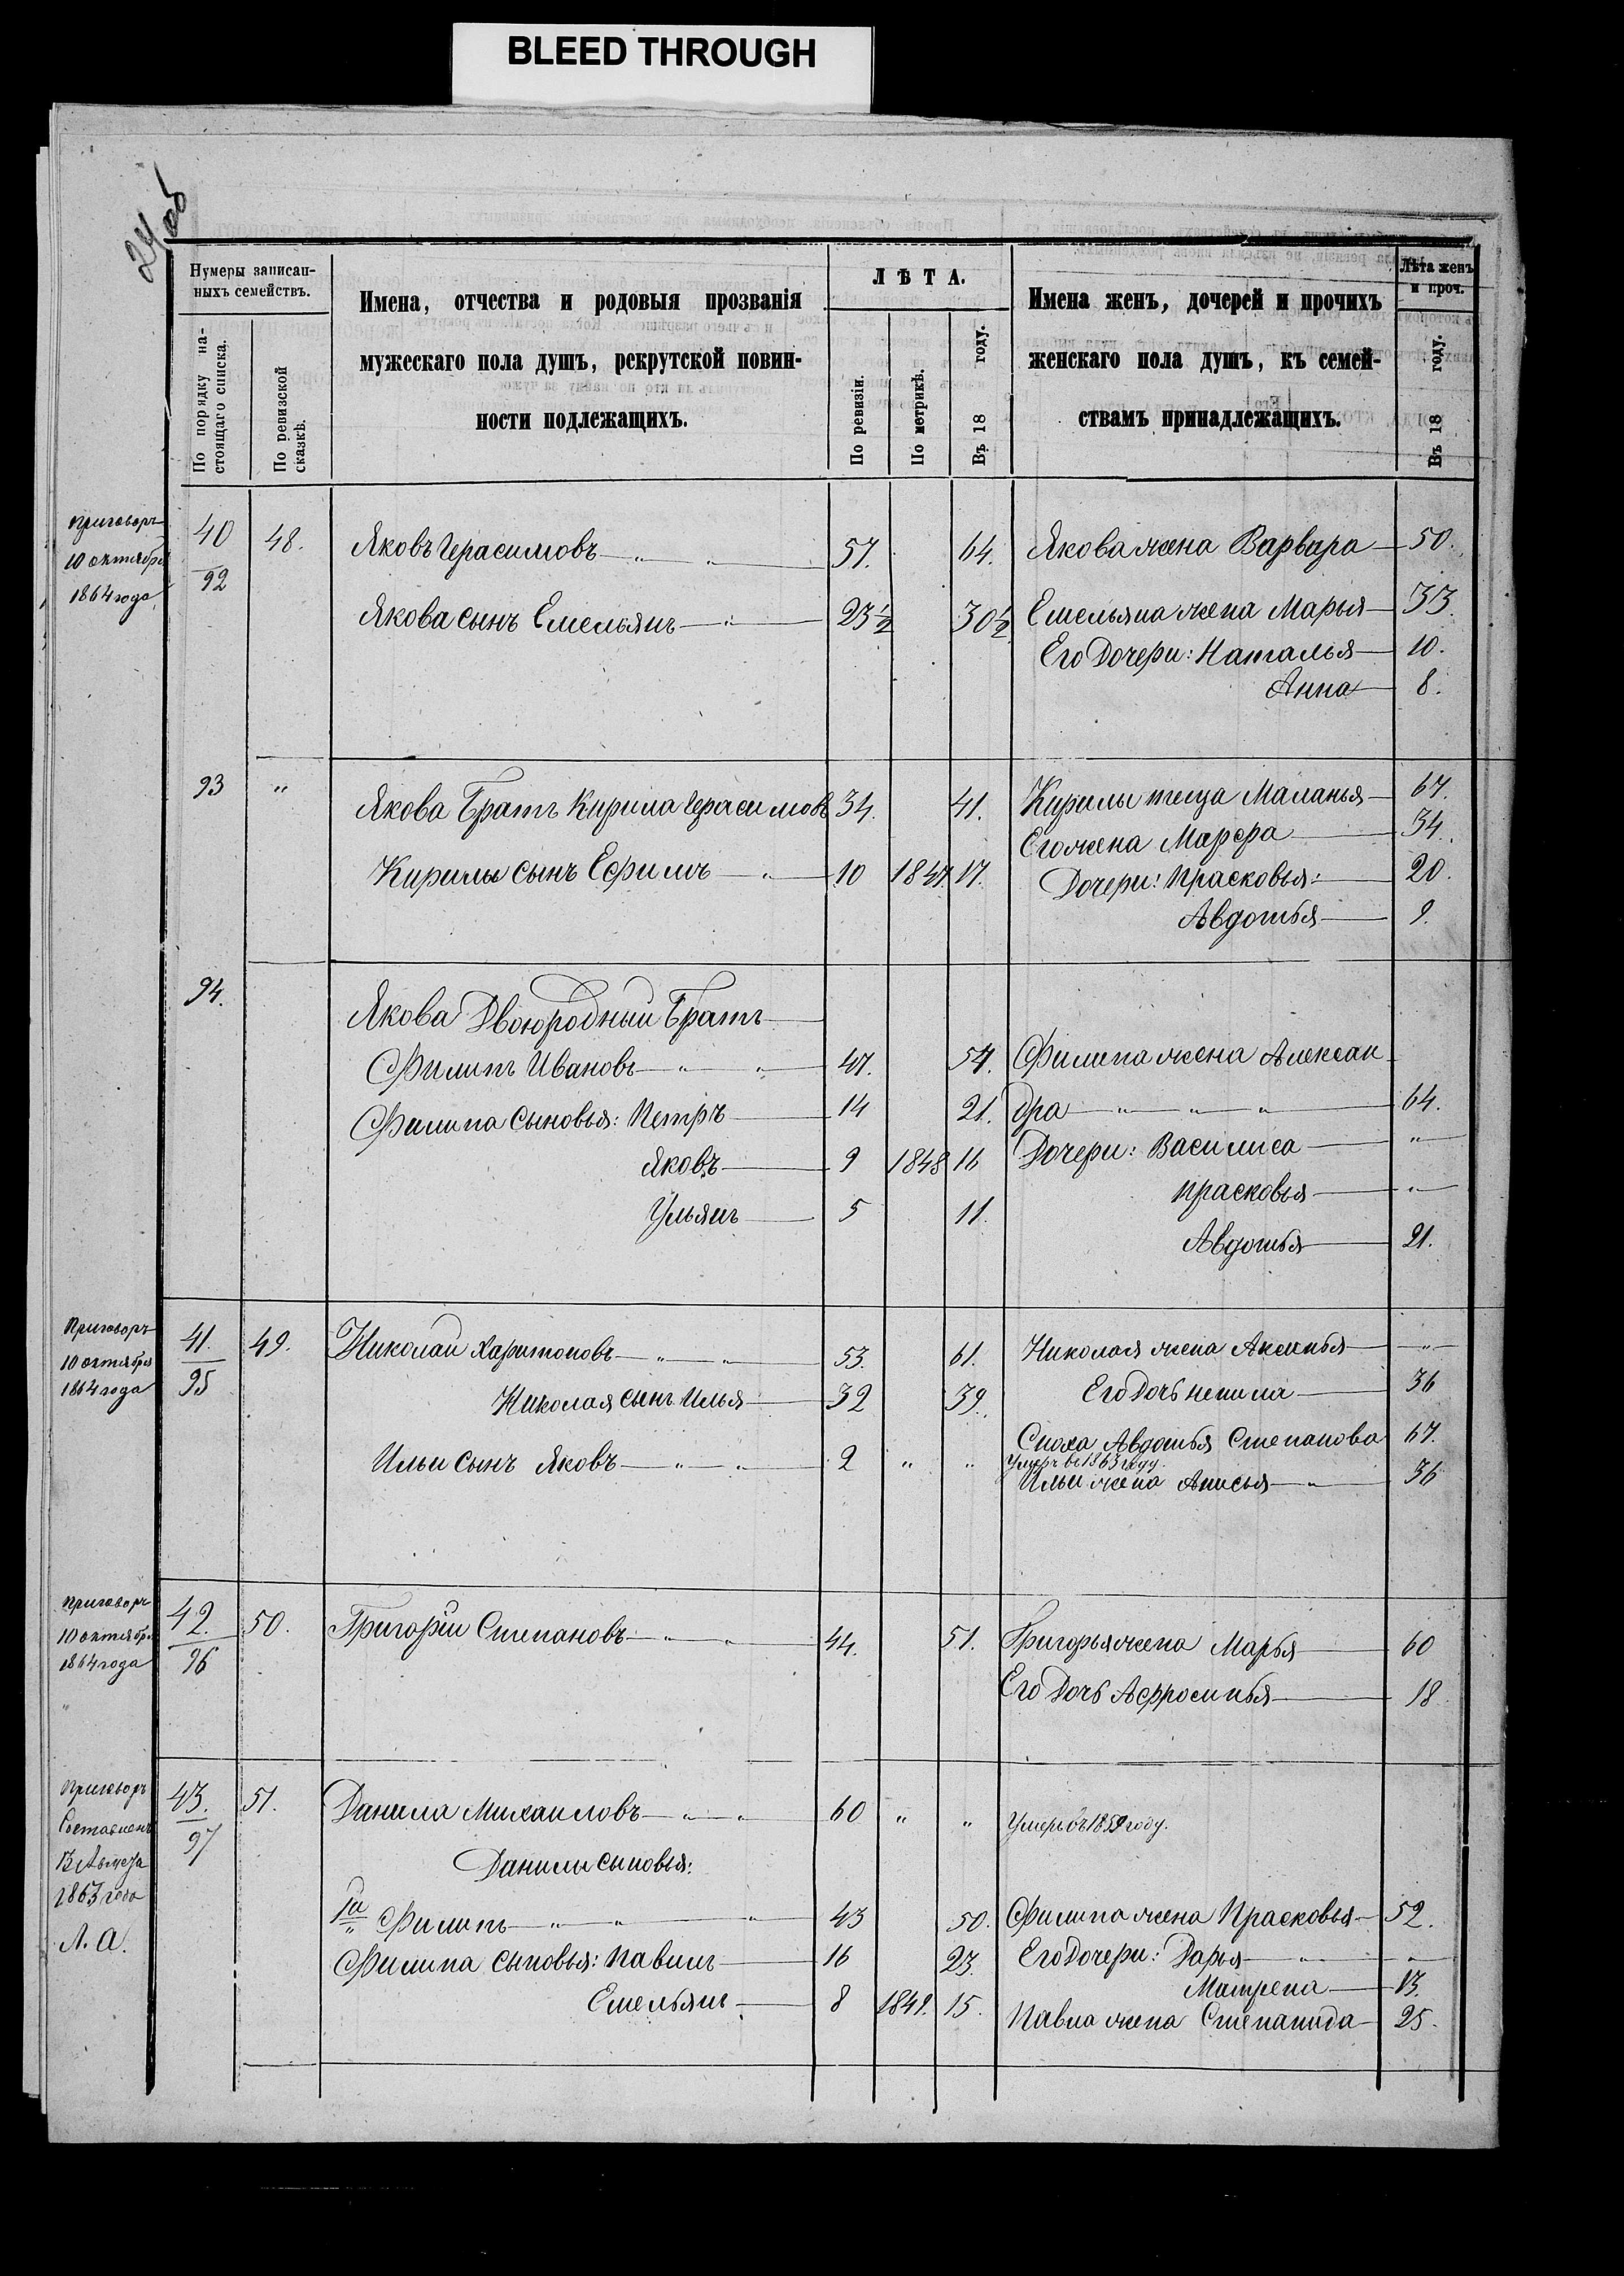 BLEED THROUGH
24 об
Нумеры записан-
ныхъ семействъ.
По порядку на-
стоящаго списка.
По ревизской
сказкѣ.
Имена, отчества и родовыя прозванія
мужескаго пола душъ, рекрутской повин-
ности подлежащихъ.
ЛѢТА.
По ревизіи.
По метрикѣ.
Въ 18 году.
Имена женъ, дочерей и прочихъ
женскаго пола душъ, къ семей-
ствамъ принадлежащихъ.
Лѣта женъ
и проч.
Въ 18 году.
Приговоръ
10 октября
1864 года
40
92
48.
Яковъ Герасимовъ 57. 64. Якова жена Варвара 50.
Якова сынъ Емельянъ 23½ 30½ Емельяна жена Марья 33.
Его Дочери: Наталья 10.
Анна 8.
93 "
Якова Братъ Кирила Герасимовъ 34. 41. Кирилы теща Маланья 67.
Его жена Марфа 34.
Кирилы сынъ Ефимъ 10 1847. 17. Дочери: Прасковья: 20.
Авдотья 9.
94.
Якова Двоюродный Братъ
Филипъ Ивановъ 47. 54. Филипа жена Алексан
Филипа сыновья: Петръ 14 21. дра 64.
Яковъ 9 1848 16 Дочери: Василиса "
Прасковья "
Ульянъ 5 11.
Авдотья 21.
Приговоръ
10 октября
1864 года
41.
95
49.
Николай Харитоновъ 53. 61. Николая жена Аксинья "
Николая сынъ Илья 32 39. Его Дочь 36
Сноха Авдотья Степанова 67.
Ильи сынъ Яковъ 2 " " Умеръ въ 1863 году.
Ильи жена Анисья 36
Приговоръ
10 октября
1864 года
"
42.
96
50.
Григорій Степановъ 44. 51. Григорья жена Марья 60
Его Дочь Афросинья 18
Приговоръ
Составленъ
13 Августа
1863 года
Л. А.
43.
97
51.
Данила Михаиловъ 60 " " Умеръ въ 1859 году.
Данилы сыновья:
1й Филипъ 43 50. Филипа жена Прасковья 52.
Филипа сыновья: Павилъ 16 23. Его Дочери: Дарья "
Матрена 13.
Емельянъ 8 1849. 15.
Павла жена Степанида 25.